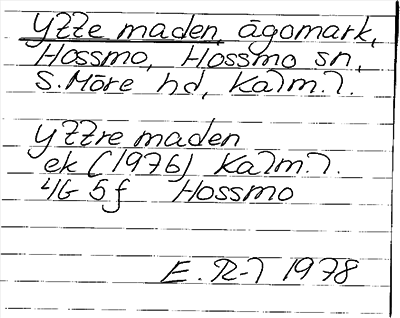 Yttre maden, ägomark,
Hossmo, Hossmo sn,
S. Möre hd, Kalm. l.
Yttre maden
ek (1976) Kalm. l.
4G 5f Hossmo
E. R-l 1978